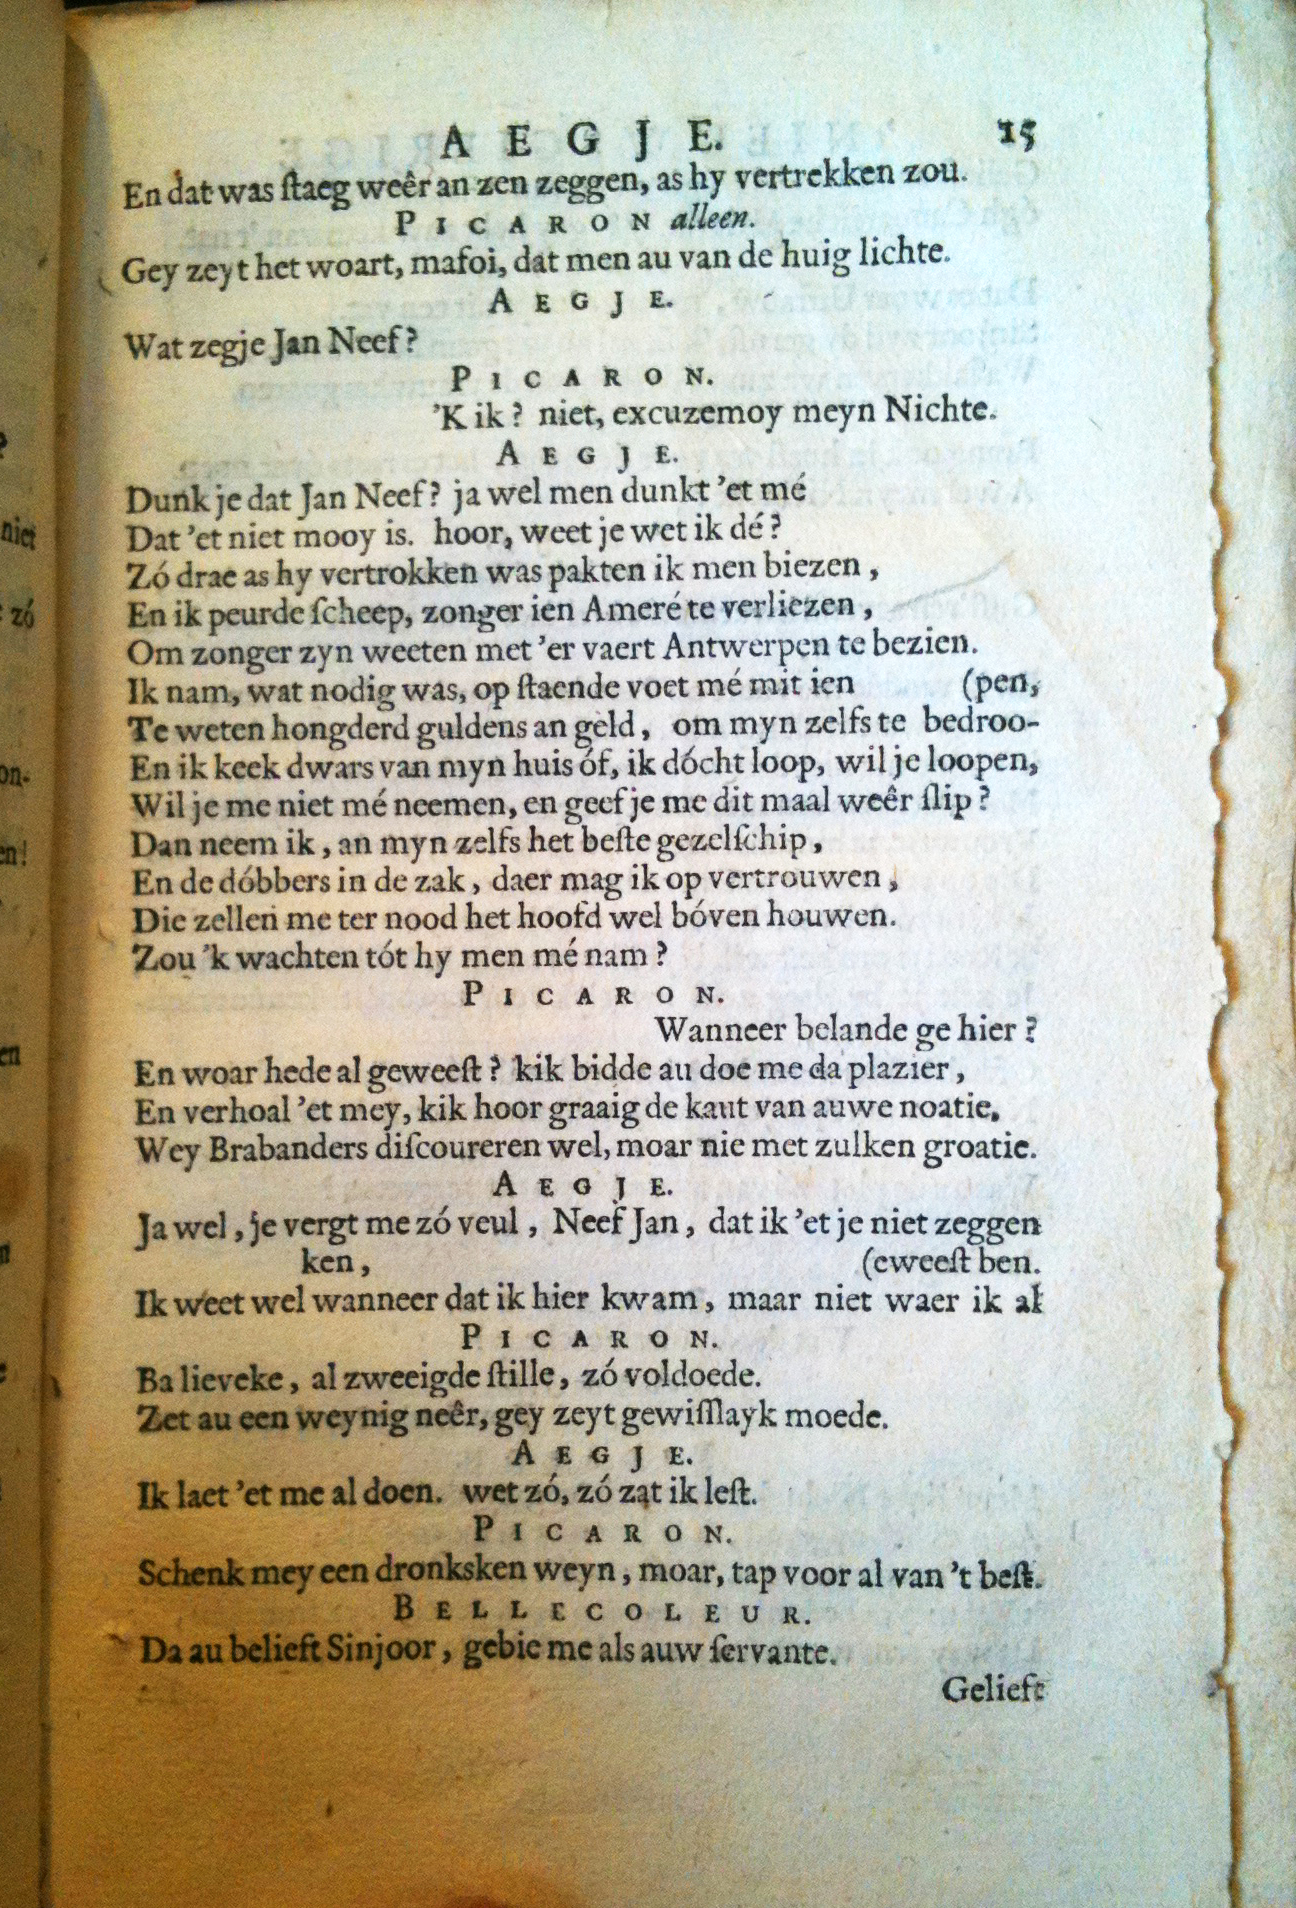 AEGJE. 15
En dat was ſtaeg weêr an zen zeggen, as hy vertrekken zou.
PICARON alleen.
Gey zeyt het woart, mafoi, dat men au van de huig lichte.
AEGJE.
Wat zegje Jan Neef?
PICARON.
'K ik? niet, excuzemoy meyn Nichte.
AEGJE.
Dunk je dat Jan Neef? ja wel men dunkt 'et mé
Dat 'et niet mooy is. hoor, weet je wet ik dé?
Zó drae as hy vertrokken was pakten ik men biezen,
En ik peurde ſcheep, zonger ien Ameré te verliezen,
Om zonger zyn weeten met 'er vaert Antwerpen te bezien.
Ik nam, wat nodig was, op ſtaende voet mé mit ien (pen,
Te weten hongderd guldens an geld, om myn zelfs te bedroo-
En ik keek dwars van myn huis óf, ik dócht loop, wil je loopen,
Wil je me niet mé neemen, en geef je me dit maal weêr ſlip?
Dan neem ik, an myn zelfs het beſte gezelſchip,
En de dóbbers in de zak, daer mag ik op vertrouwen,
Die zellen me ter nood het hoofd wel bóven houwen.
Zou 'k wachten tót hy men mé nam?
PICARON.
Wanneer belande ge hier?
En woar hede al geweeſt? kik bidde au doe me da plazier,
En verhoal 'et mey, kik hoor graaig de kaut van auwe noatie.
Wey Brabanders diſcoureren wel, moar nie met zulken groatie.
AEGJE.
Ja wel, je vergt me zó veul, Neef Jan, dat ik 'et je niet zeggen
ken, (eweeſt ben.
Ik weet wel wanneer dat ik hier kwam, maar niet waer ik al
PICARON.
Ba lieveke, al zweeigde ſtille, zó voldoede.
Zet au een weynig neêr, gey zeyt gewiſſlayk moede.
AEGJE.
Ik laet 'et me al doen. wet zó, zó zat ik leſt.
PICARON.
Schenk mey een dronksken weyn, moar, tap voor al van 't beſt.
BELLECOLEUR.
Da au belieft Sinjoor, gebie me als auw ſervante.
Gelieft